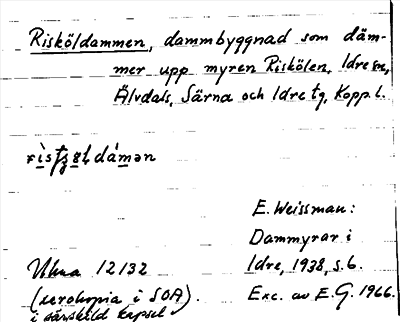 Risköldammen, dammbyggnad som däm-
mer upp myren Riskölen, Idre sn,
Älvdals, Särna och Idre tg, Kopp. l.
E. Weissman:
Dammyrar i
Idre, 1938, s. 6.
Exc. av E. G. 1966.
Ulma 12132
(xerokopia i SOA).
i särskild kapsel